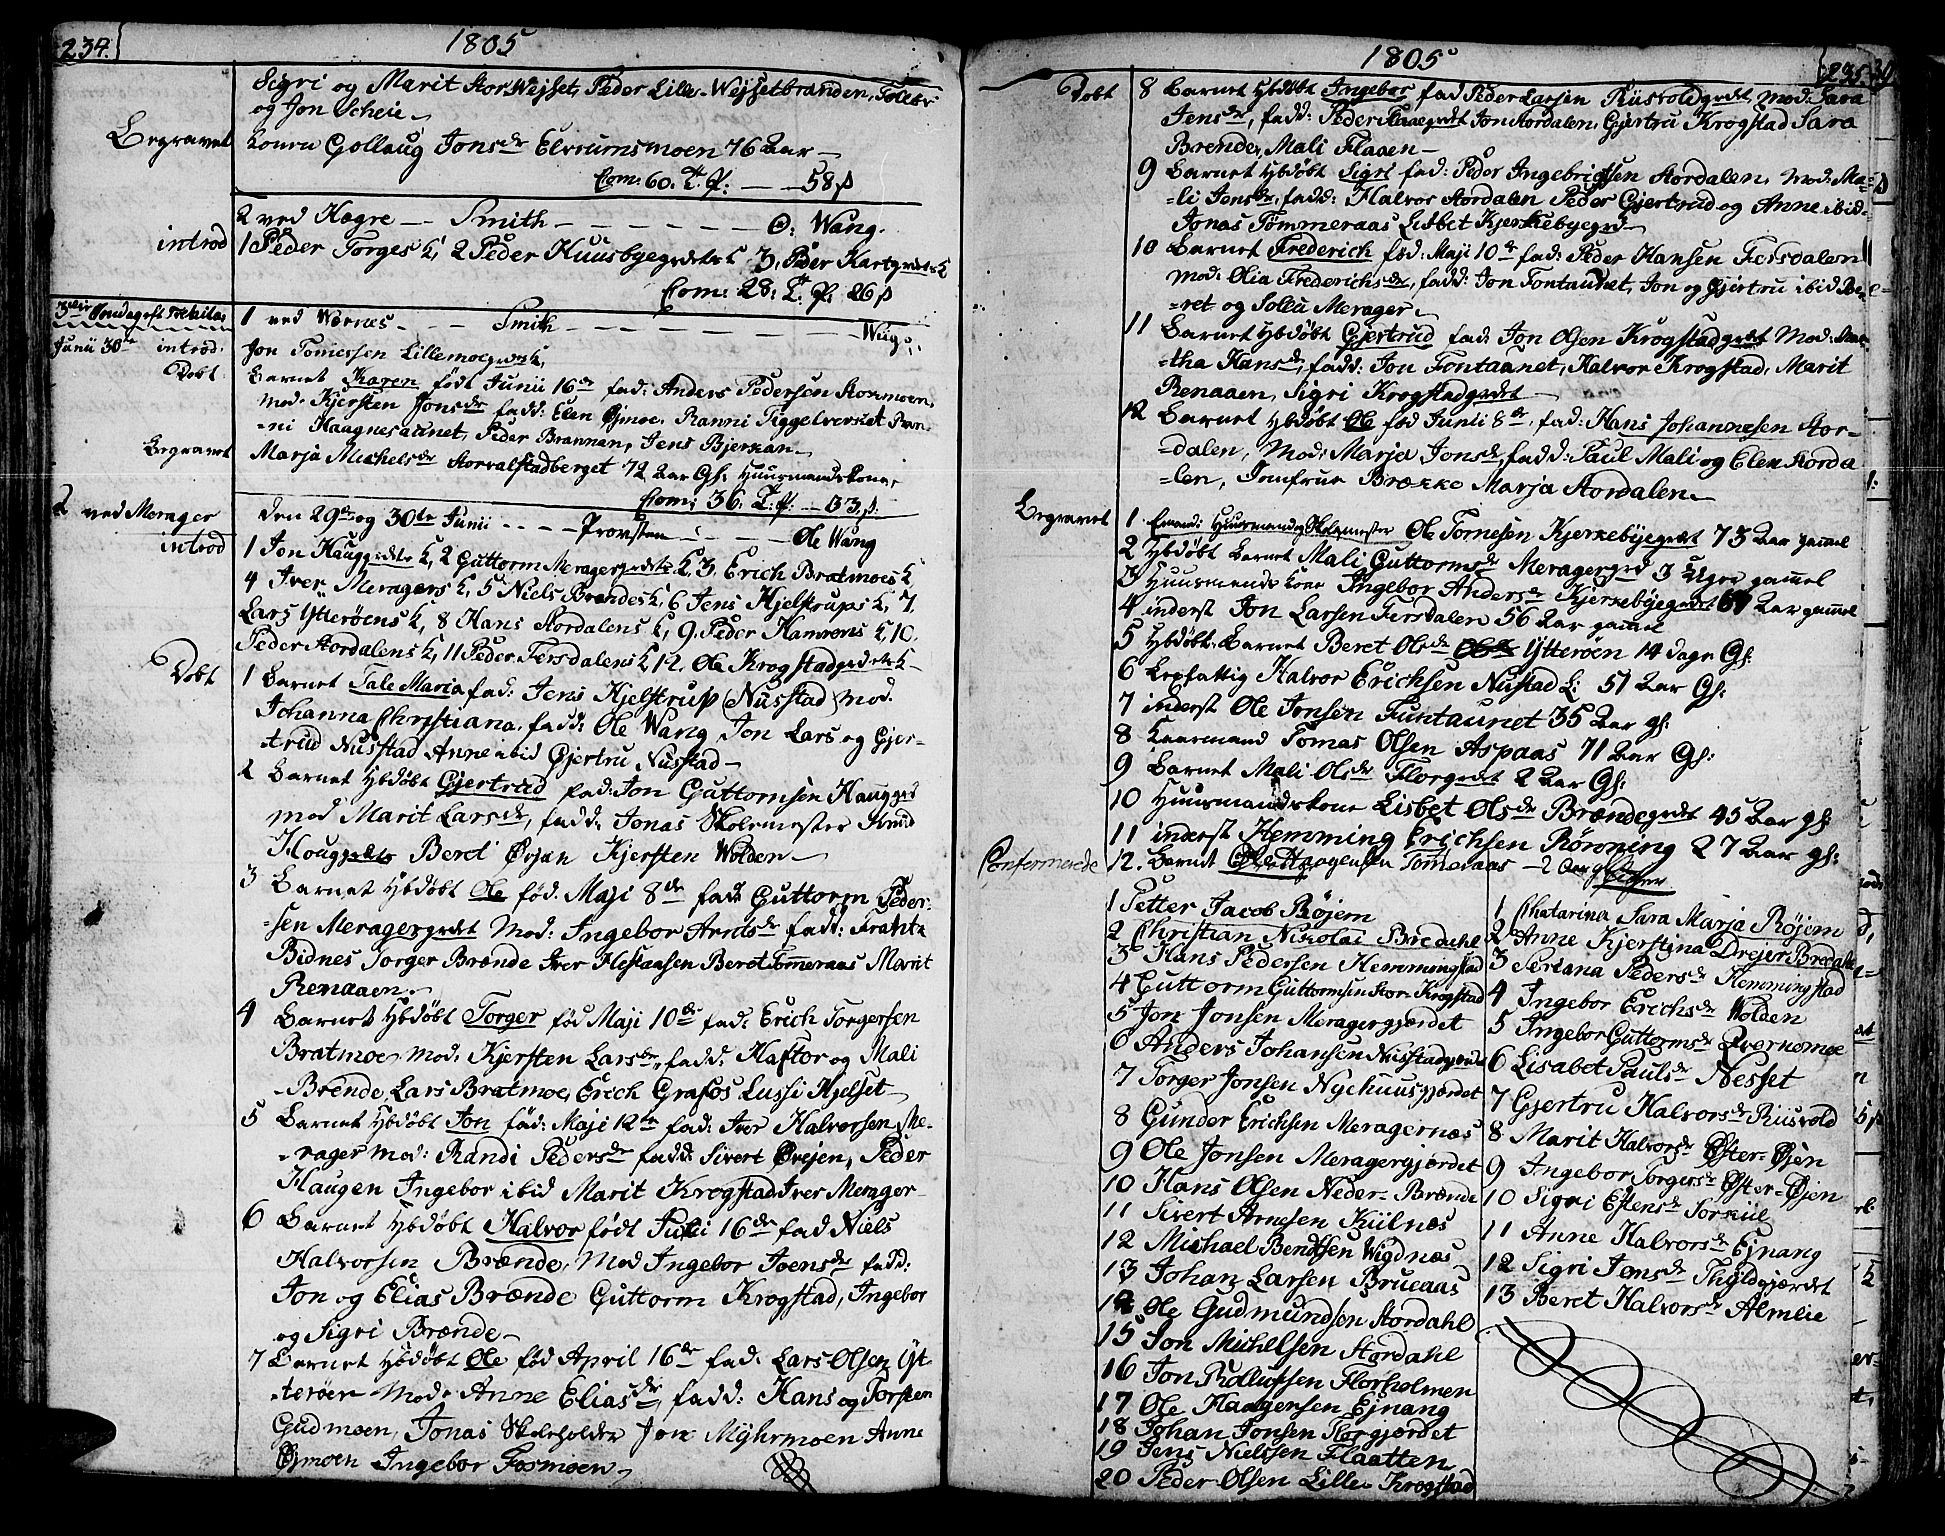 234.
1805
Sigri og Marit StorWejset, Peder Lille-Wejsetbranden,
og Jon Scheie
Begravet Konen Gollaug Jons dr Elvrumsmoen 76 Aar
Com: 60. T. P: — 58 ß
2 ved Hegre — Smith — — — O: Wang.
introd 1 Peder Torges K, 2 Peder Huusbyegrdets K 3. Peder
Com: 28: T. P. 26 ß
3die Søndag efter Trinitas 1 ved Wernes — Smith — — — Wiig
Junii 30te introd. Jon Tomessen K,
Døbt Barnet Karen født Junii 16de fad: Anders Pedersen Stormoen,
mod: Kjersten Jons dr fadd: Elen Øjmoe, Ranni Tiggelverket Ran-
=ni Haagnesaunet, Peder Brannan, Jens Bjerkan
Begravet Marja Michels dr Storvalstadberget 72 Aar Gl: Huusmandskone,
Com; 36. T: P. — 83 ß.
2 ved Merager den 29de og 30te Junii — Provsten — Ole Wang
introd 1 Jon Hauggrdets K, 2 Guttorm Meragergrdets K 3. Erich Bratmoes K
4 Iver Meragers K, 5 Niels Brendes K, 6 Jens Hjelstrups K, 7.
Lars Ytterøens K, 8 Hans Stordalens K, 9. Peder K 10.
Peder Stordalens K, 11 Peder Fersdalens K 12. Ole Krogstadgrdets K
Døbt 1 Barnet Tale Maria fad: Jens Hjelstrup (Nusstad) mod.
Johanna Christiana, fadd: Ole Wang Jon Lars og Gjer-
=trud Nusstad Anne ibid Gjertru Nusstad
2 Barnet Hbdøbt Gjertrud fad: Jon Guttomsen Haugged
mod Marit Lars dr, fadd: Jonas Skolemester
Beret Øvjen Kjersten Wolden
3 Barnet Hbdøbt Ole fød. Maji 8de fad: Guttorm Peder-
=sen Meragergrdet Mod: Ingebor Arnts dr fadd: Frantz
Bidnes Torger Brende Iver Beret Tømeraas Marit
Renaaen
4 Barnet Hbdøbt Torger fød Maji 10de fad: Erich Torgersen
Bratmoe, mod. Kjersten Lars dr, fadd: Haftor og Mali
Brende, Lars Bratmoe, Erich Grafos Lussi Hjelset
5 Barnet Hbdøbt Jon fød: Maji 12te fad: Iver Halvorsen Me-
=rager mod: Randi Peders dr fadd: Sivert Øvejen, Peder
Haugen Ingebor ibid Marit Krogstad Iver Merager
6 Barnet Hbdøbt Halvor født Juni 16de fad Niels
Halvorsen Brænde, Mod Ingebor Joens dr fadd:
Jon og Elias Brænde Guttorm Krogstad, Ingebor
og Sigri Brænde
7 Barnet Hbdøbt Ole fød April 16de fad: Lars Olsen Yt-
=terøen Mod. Anne Elias dr, fadd: Hans og Torsten
Gudmoen, Jonas Skoleholder Jon Myhrmoen Anne
Øjmoen Ingebor Fosmoen
1805
235
Døbt 8 Barnet Hbdøbt Ingebor fad Peder Larsen Riisvoldgrdet, mod: Sara
Jens dr, fadd: Peder Flaaegrdt Jon Stordalen, Gjertru Krogstad Sara
Brende, Mali Flaaen
9 Barnet Hbdøbt Sigri fad: Peder Ingebrigtsen Stordalen, Mod: Ma-
=li Jons dr, fadd: Halvor Stordalen Peder Gjertrud og Anne ibid
Jonas Tømmeraas Lisbet Kjerkebyegrd
10 Barnet Frederich fød. Maji 10de fad: Peder Hansen Fersdalen
mod: Olia Frederichs dr, fadd: Jon Fontaunet, Jon og Gjertru ibid Be-
=ret og Merager
11 Barnet Hbdøbt Gjertrud fad: Jon Olsen Krogstadgrdet Mod: Mar-
=tha Hans dr, fadd: Jon Fontaunet, Halvor Krogstad, Marit
Renaaen, Sigri Krogstadgrdet
12 Barnet Hbdøbt Ole fød Junii 8de, fad: Hans Johannesen Stor-
=dalen, Mod: Marja Jons dr, fadd: Paul Mali og Elen Storda
=len, Jomfrue Brække Marja Stordalen
Begravet 1. Huusmand og Skolemester Ole Tomesen Kjerkebyegrdet 73 Aar gammel
2 Hbdøbt Barnet Mali Guttorms dr Meragergrd 3 Uger gammel
3 Huusmands kone Ingebor Anders dr Kjerkebyegrdet 67 Aar gammel
4 inderst Jon Larsen Fersdalen 56 Aar gammel
5 Hbdøbt Barnet Beret Ols dr Ytterøen 14 dage Gl:
6 Halvor Erichsen Nustad L: 51 Aar Gl:
7 inderst Ole Jonsen Funtaunet 35 Aar gl:
8 Kaarmand Tomas Olsen Aspaas 71 Aar Gl:
9 Barnet Mali Ols dr Florgrdet 2 Aar Gl:
10 Huusmandskone Lisbet Ols dr Brændegrdet 45 Aar gl:
11 inderst Hemming Erichsen Rønning 27 Aar gl:
12. Barnet Ole Haagensen Tomeraas — 2 Aar gl
Confermerede
Piger
1 Petter Jacob Røjem
2 Christian Nikolai Bredahl
3 Hans Pedersen Hemmingstad
4 Guttorm Guttormsen Stor-Krogstad
5 Jon Jonsen Meragergjærdet
6 Anders Johansen Nusstadgrdet
7 Torger Jonsen Nyehuusgjærdet
8 Gunder Erichsen Meragernæs
9 Ole Jonsen Meragergjærdet
10 Hans Olsen Neder-Brænde
11 Sivert Arnesen Kiilnæs
12 Michael Bendtsen Wigdnæs
13 Johan Larsen Brueaas
14 Ole Gudmundsen Stordahl
15 Jon Michelsen Stordahl
16 Jon Rolufsen Florholmen
17 Ole Haagensen Ejnang
18 Johan Jonsen Florgjærdet
19 Jens Nielssen Flaatten
20 Peder Olsen Lille-Krogstad
1 Chatarina Sara Marja Røjem
2 Anne Kjerstina Drejer Bredahl
3 Seriana Peders dr Hemmingstad
4 Ingebor Erichs dr Wolden
5 Ingebor Guttorms dr Qvernmoe
6 Lisabet Pauls dr Nesset
7 Gjertru Halvors dr Riisvold
8 Marit Halvors dr Øster-Øjen
9 Ingebor Torgers dr Øster-Øjen
10 Sigri Estens dr Sorkiil
11 Anne Halvors dr Ejnang
12 Sigri Jens dr Thyldgjærdet
13 Beret Halvors dr Almlie